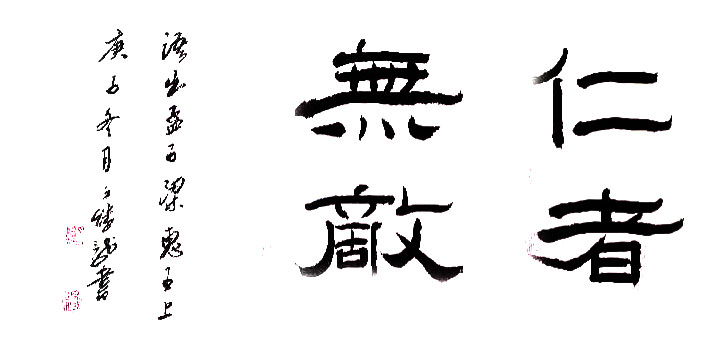 仁者
無敵
語出孟子梁惠王上
庚子冬月
書